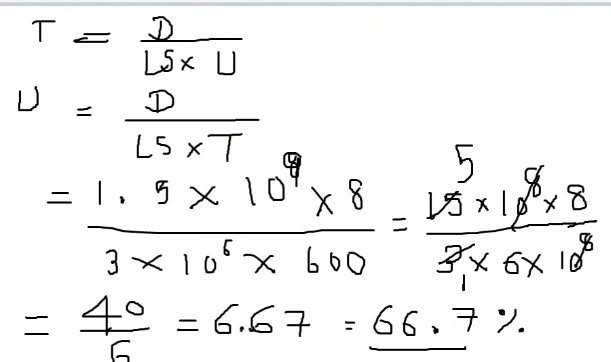 T = D / LS × U
U = D / LS × T
= 1.5 × 10⁹ × 8 / 3 × 10⁶ × 600 = 5 15 × 10⁸ × 8 / 3 1 × 6 × 10⁸
= 40 / 6 = 6.67 = 66.7 %